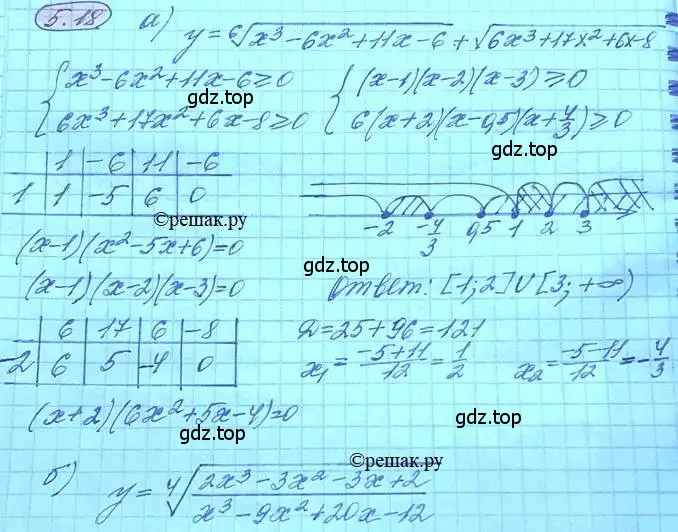 5.18. а) y = ⁶√(x³-6x²+11x-6) + √(6x³+17x²+6x-8)
{ x³-6x²+11x-6≥0 { (x-1)(x-2)(x-3)≥0
gdz.top
gdz.top
6x³+17x²+6x-8≥0 6(x+2)(x-0,5)(x+4/3)≥0
1 | -6 | 11 | -6
1 | 1 | -5 | 6 | 0
©решак.ру
-2 -4/3 0,5 1 2 3
(x-1)(x²-5x+6)=0
gdz.top
(x-1)(x-2)(x-3)=0 Ответ: [1;2]∪[3;+∞)
6 | 17 | 6 | -8 D=25+96=121
-2 | 6 | 5 | -4 | 0 x₁ = (-5+11)/12 = 1/2 x₂ = (-5-11)/12 = -4/3
(x+2)(6x²+5x-4)=0
gdz.top
gdz.top
©решак.ру
б) y = ⁴√((2x³-3x²-3x+2)/(x³-9x²+20x-12))